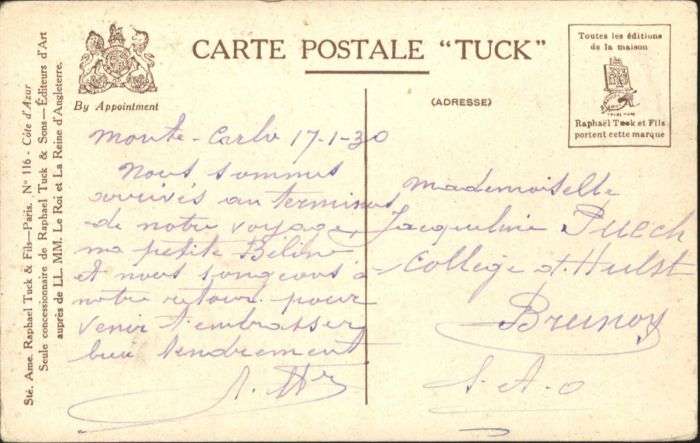 CARTE POSTALE "TUCK"
By Appointment
(ADRESSE)
Toutes les éditions
de la maison
Raphaël Tuck et Fils
portent cette marque
Sté. Ame. Raphael Tuck & Fils—Paris. No 116 - Côte d'Azur
Seule concessionnaire de Raphael Tuck & Sons—Éditeurs d'Art
auprès de LL. MM. Le Roi et La Reine d'Angleterre.
Monte-Carlo 17-1-30
Nous sommes
arrivés au terminus
de notre voyage,
ma petite Béline
et nous songeons à
notre retour pour
venir t'embrasser
bien tendrement
Mademoiselle
Jacqueline Puech
College d'Hulst
Brunoy
S. &. O